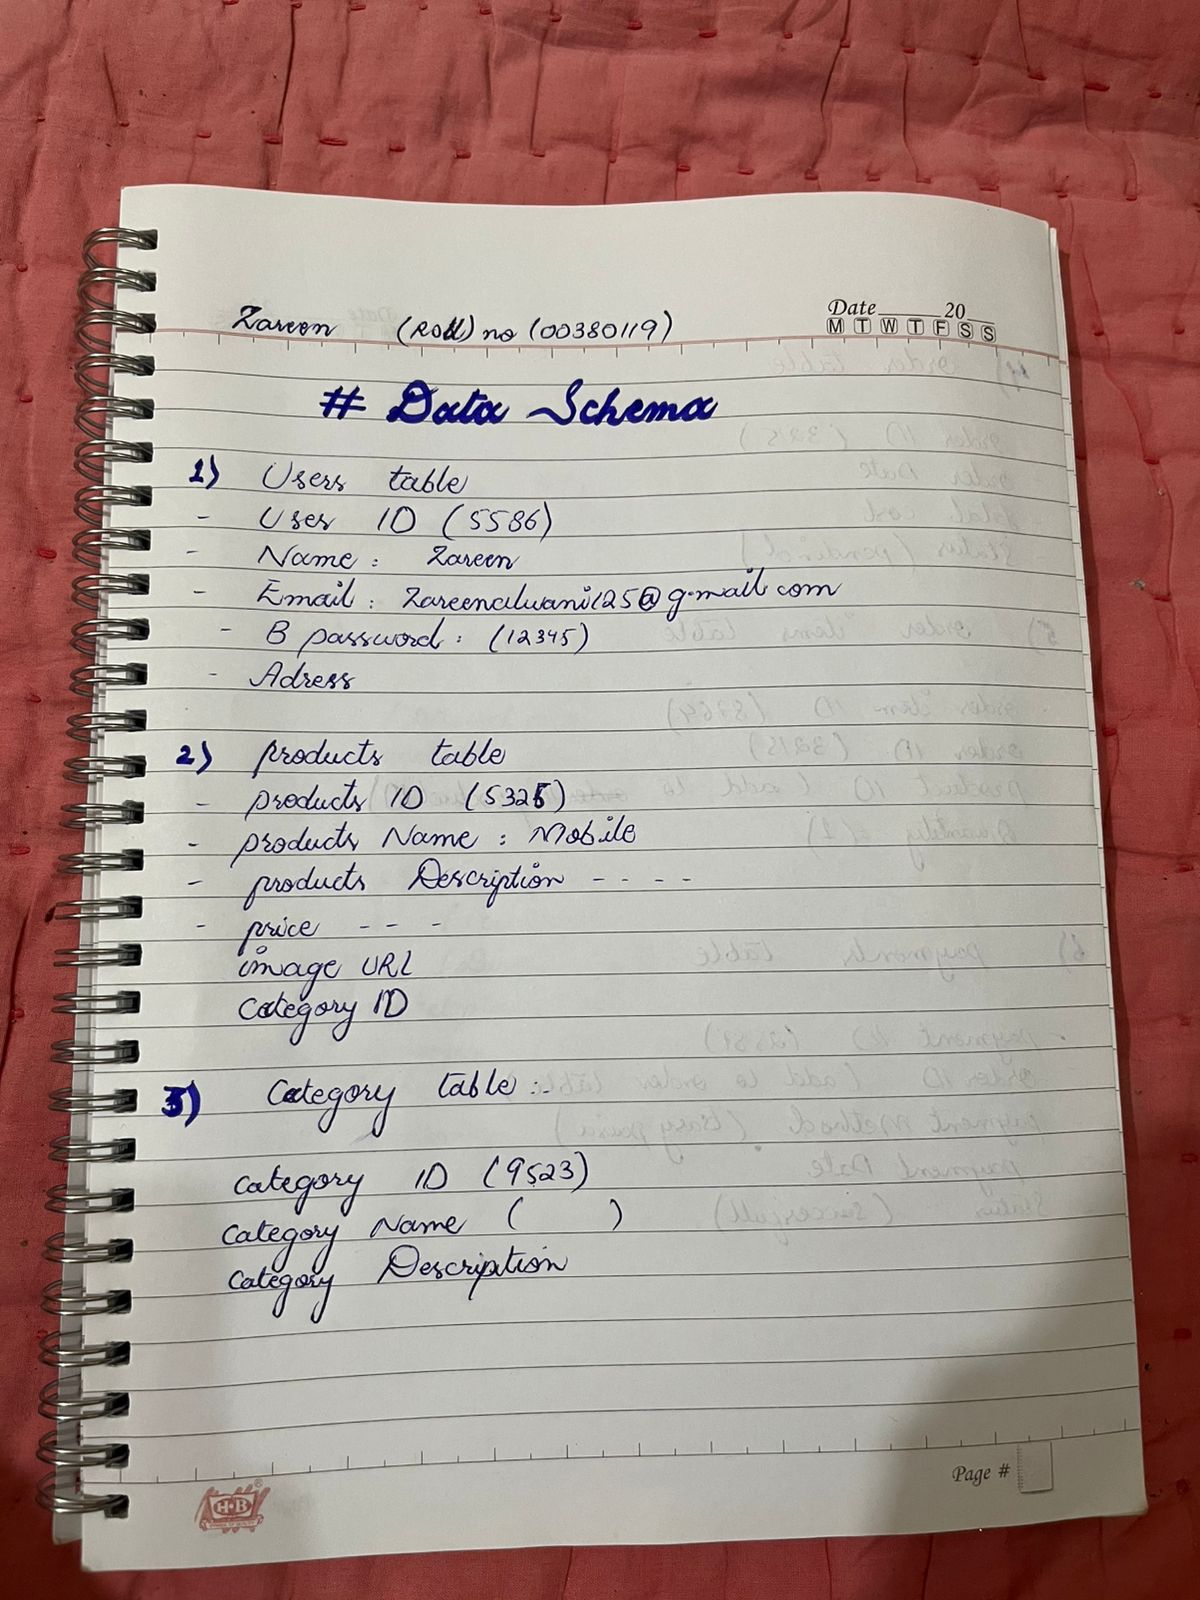 Zareen (Roll) no (00380119)
Date 20
M T W T F S S
# Data Schema
1) Users table
- User ID (5586)
- Name : Zareen
- Email : @gmail.com
- B password : (12345)
- Adress
2) products table
- products ID (5325)
- products Name : Mobile
- products Description - - - -
- price - - -
image URL
category ID
3) Category table :
category ID (9523)
category Name ( )
category Description
Page #
H&B